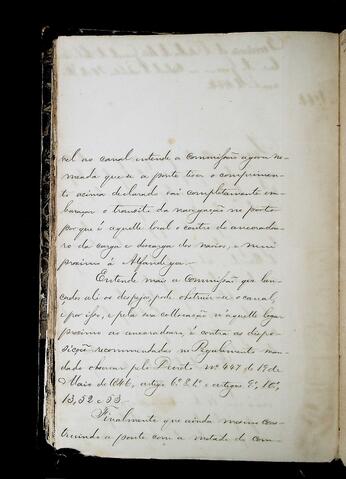 vel ao canal entende a Commissão agora no-
meada que se a ponte tiver o comprimen-
to acima declarado vai completamente em-
baraçar o transito da navegação no porto
por que é aquelle local o centro do ancoradou-
ro da carga e descarga dos navios, e mui
proximo á Alfandega.
Entende mais a Commissão que lan-
çados ali os despejos, pode obstruir-se o canal,
e por isso, e pela sua collocação n'aquelle lugar
proximo ao ancoradouro, é contra as dispo-
sições recommendadas no Regulamento man-
dado observar pelo Decreto nº 447 de 19 de
Maio de 1846, artigo 6º § 1º e artigos
13, 52 e 53.
Finalmente que ainda mesmo cons-
truindo a ponte com a metade do com-